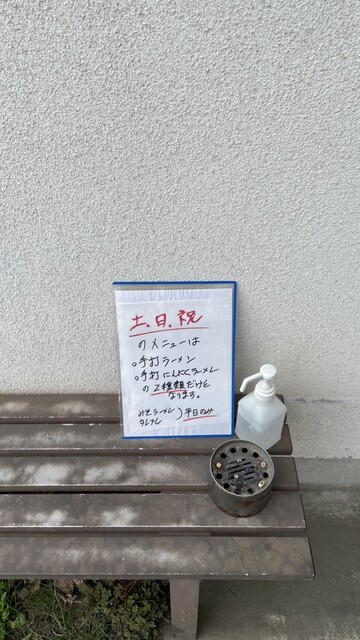 土、日、祝
のメニューは
○手打ラーメン
○手打にんにくラーメン
の2種類だけと
なります。
みそラーメン)平日のみ
タンメン